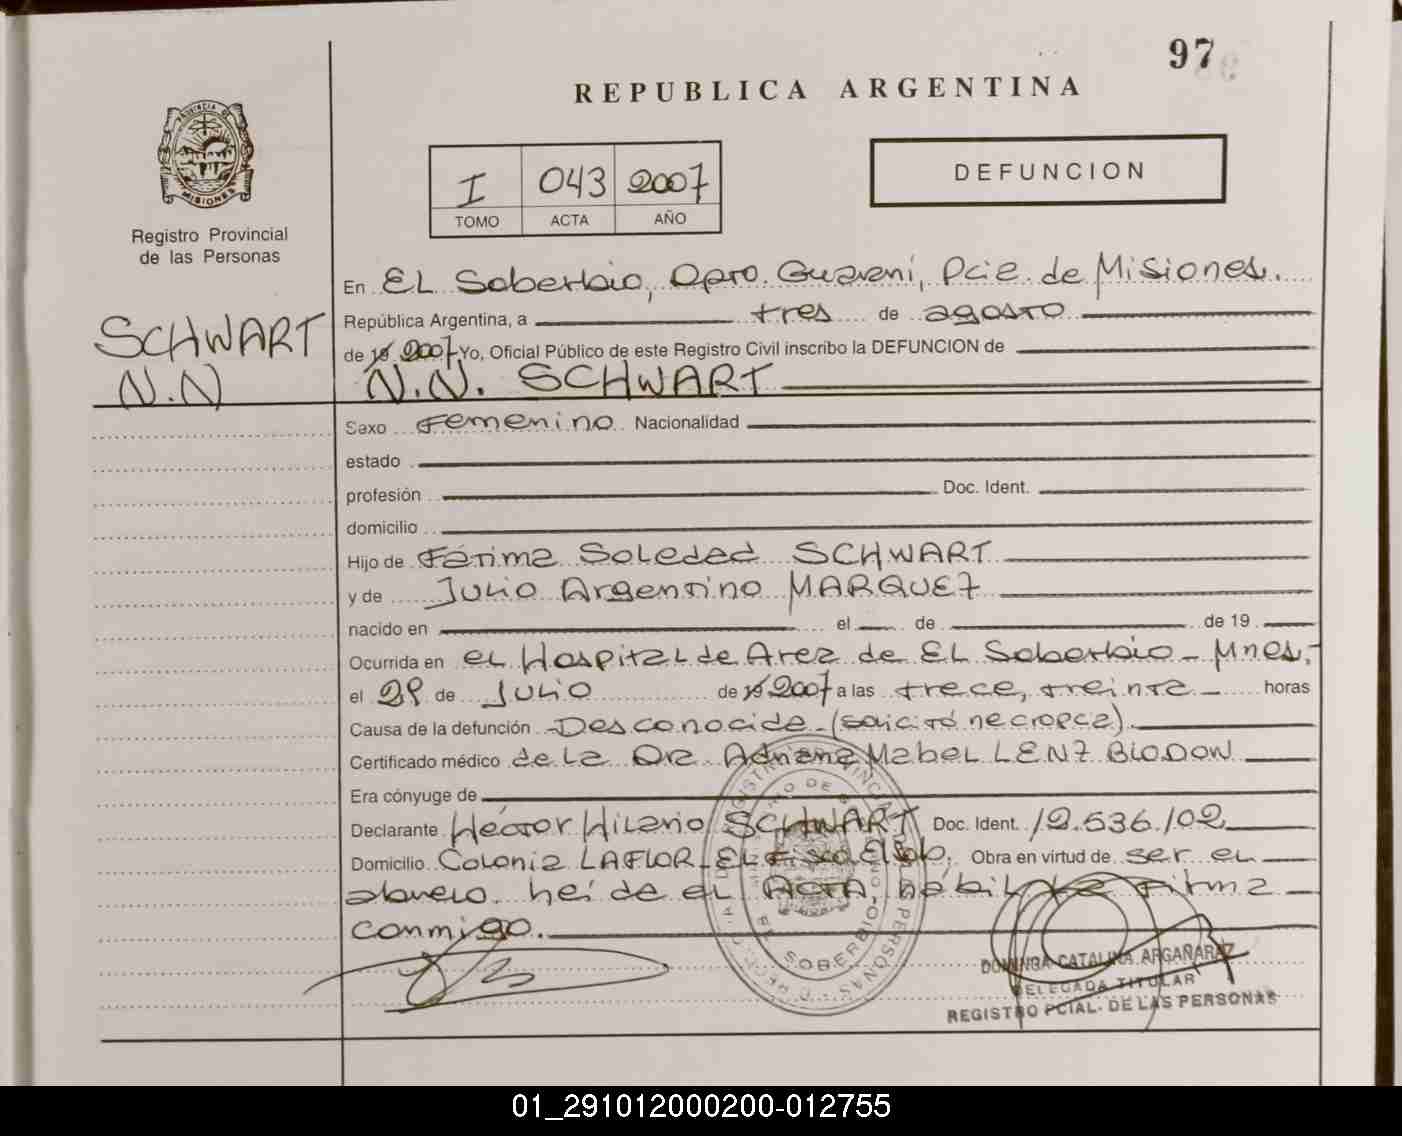 97
REPUBLICA ARGENTINA
PROVINCIA DE
MISIONES
Registro Provincial
de las Personas
I 043 2007
TOMO ACTA AÑO
DEFUNCION
En EL Soberbio, Dpto. Guaraní, Pcie. de Misiones.
República Argentina, a tres de agosto
SCHWART
N.N
de 19 2007 Yo, Oficial Público de este Registro Civil inscribo la DEFUNCION de
N.N. SCHWART
Sexo Femenino Nacionalidad
estado
profesión Doc. Ident.
domicilio
Hijo de Fátima Soledad SCHWART
y de Julio Argentino MARQUEZ
nacido en el de de 19
Ocurrida en el Hospital de Area de EL Soberbio - Mnes,-
el de Julio de 19 2007 a las trece, treinta horas
Causa de la defunción Desconocida - (solicitó necropcia).
Certificado médico de la Dra Adriana Mabel LENZ BLODON
Era cónyuge de
Declarante Héctor Hilario SCHWART Doc. Ident. 12.536.102
Domicilio Colonia LA FLOR - EL Obra en virtud de ser el
abuelo. leí de el ACTA firma
conmigo.
DOMINGA CATALINA ARGAÑARAZ
DELEGADA TITULAR
REGISTRO PCIAL. DE LAS PERSONAS
01_291012000200-012755